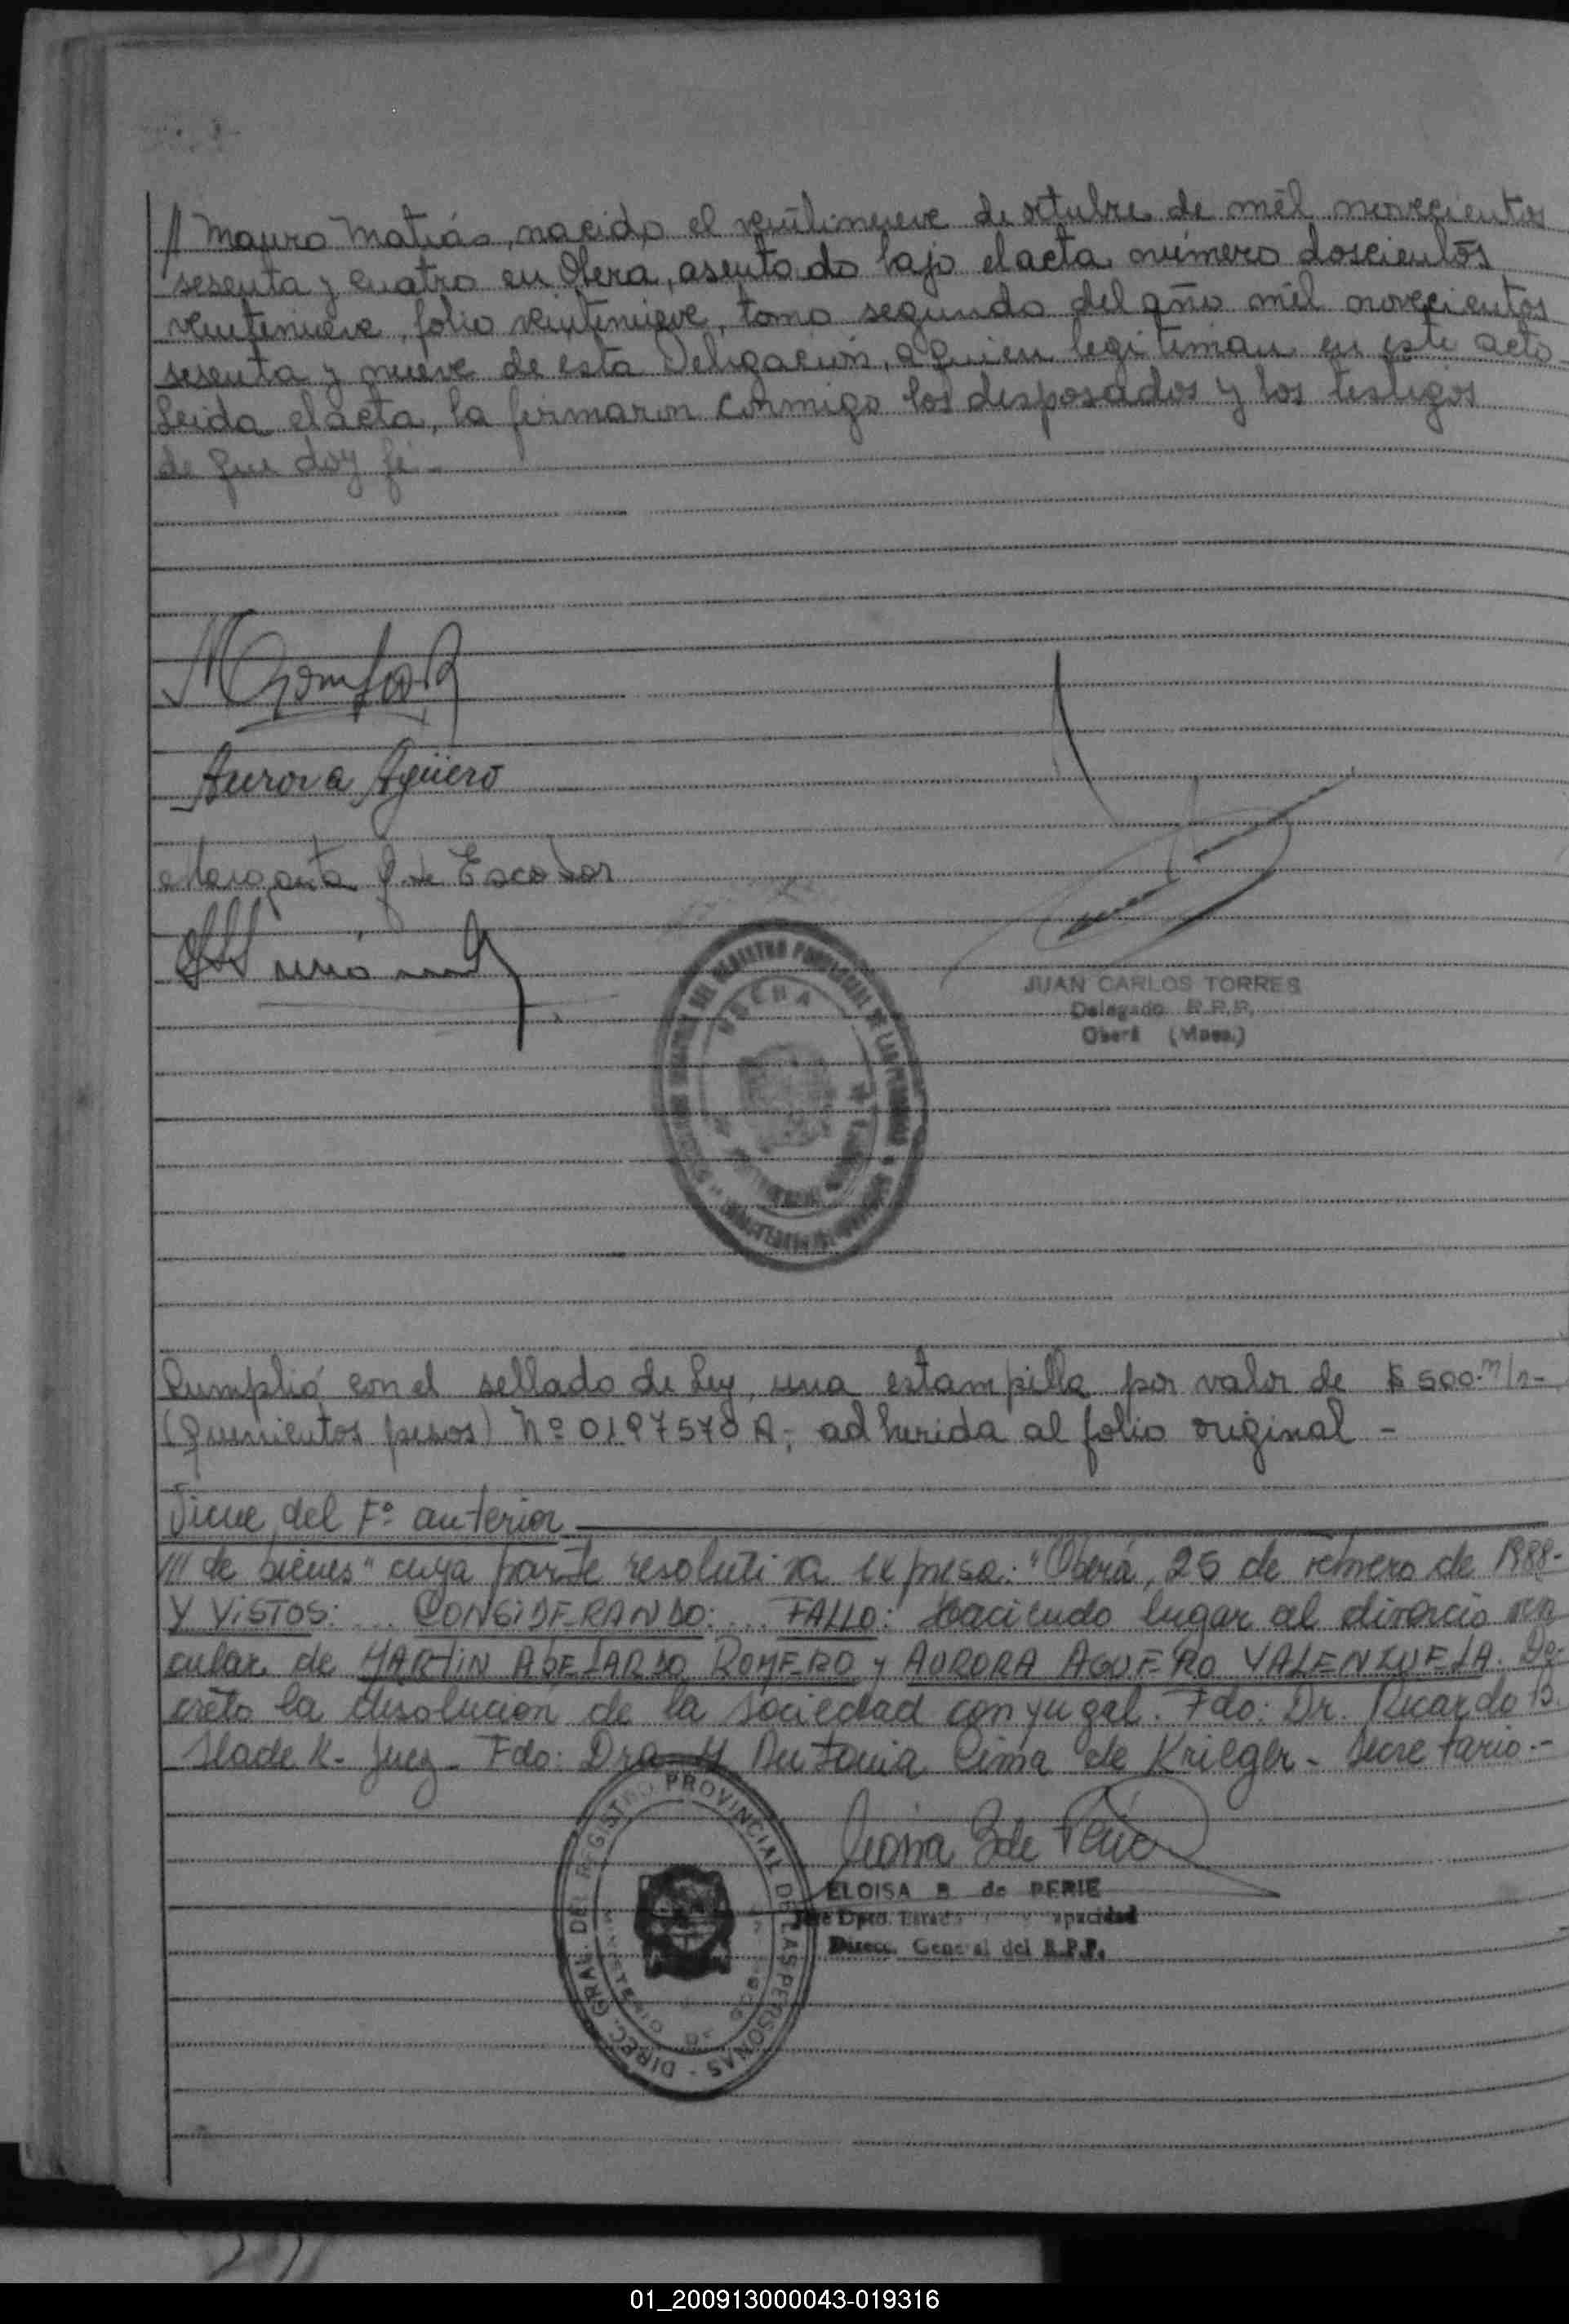 // Mauro Matías, nacido el veintinueve de octubre de mil novecientos
sesenta y cuatro en Obera, asentado bajo el acta número doscientos
veintinueve, folio veintinueve, tomo segundo del año mil novecientos
sesenta y nueve de esta Delegación, a quien legitiman en este acto
Leida el acta, la firmaron conmigo los desposados y los testigos
de que doy fé.-
Aurora Agüero
Margarita de Escobar
JUAN CARLOS TORRES
Delegado R.P.P.
Oberá (Mnes.)
Cumplió con el sellado de Ley, una estampilla por valor de $ 500.m/n-
(quinientos pesos) Nº 0197570 A; adherida al folio original -
Viene del Fº anterior
/// de bienes" cuya parte resolutiva expresa: "Oberá, 25 de febrero de 1988-
Y VISTOS: ... CONSIDERANDO: ... FALLO: Haciendo lugar al divorcio vin
cular de MARTIN ABELARDO ROMERO y AURORA AGUERO VALENZUELA. De-
creto la disolución de la sociedad conyugal. Fdo: Dr. Ricardo B.
Slade K- Juez- Fdo: Dra M Antonia Cima de Krieger- Secretario.-
DIREC. GRAL. DEL REGISTRO PROVINCIAL DE LAS PERSONAS -
MINISTERIO DE
ELOISA B de PERIE
Jefe Dpto. Estado y Capacidad
Direcc. General del R.P.P.
01_200913000043-019316